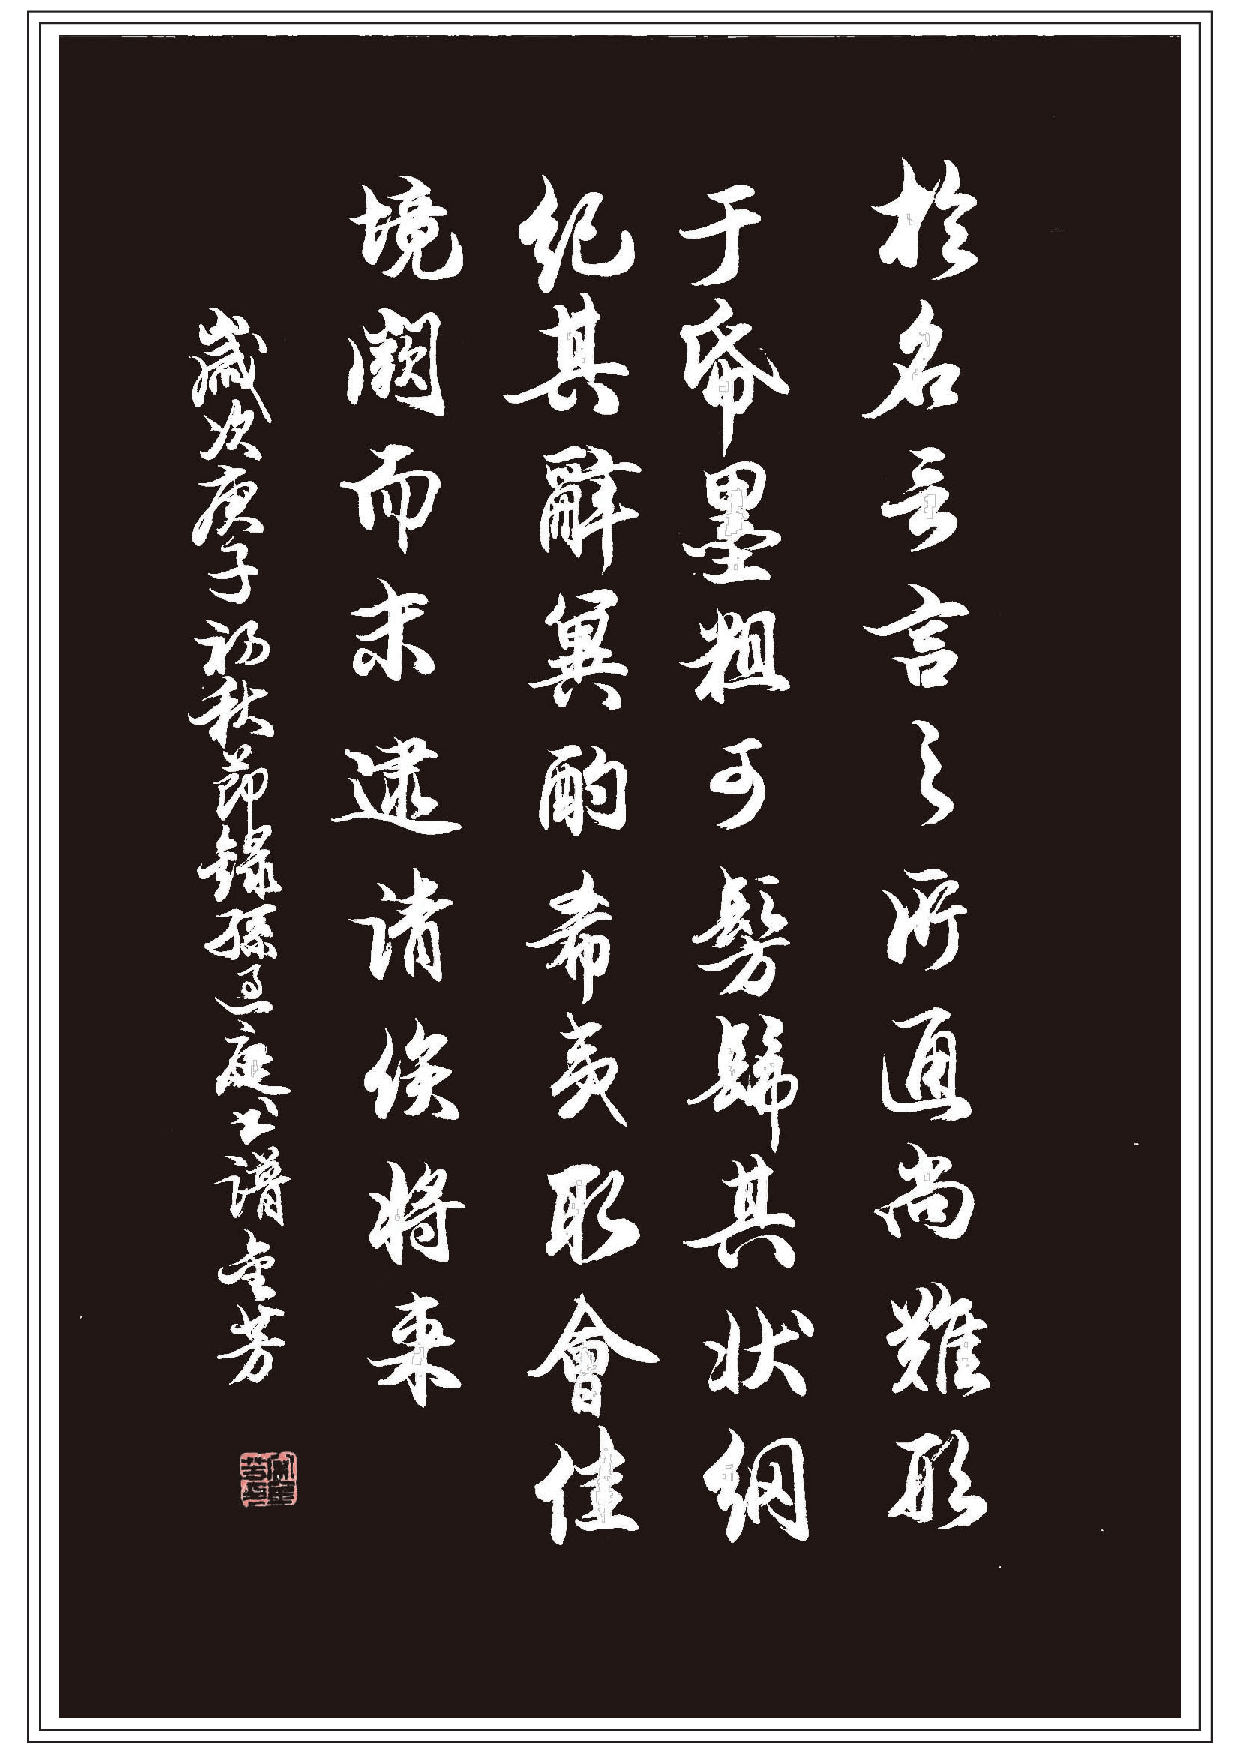 於名言言之所通尚難形
于帋墨粗可髣髴其状綱
紀其辭冀酌希夷取會佳
境闕而未逮請俟将来
歲次庚子初秋節錄孫過庭書譜芳